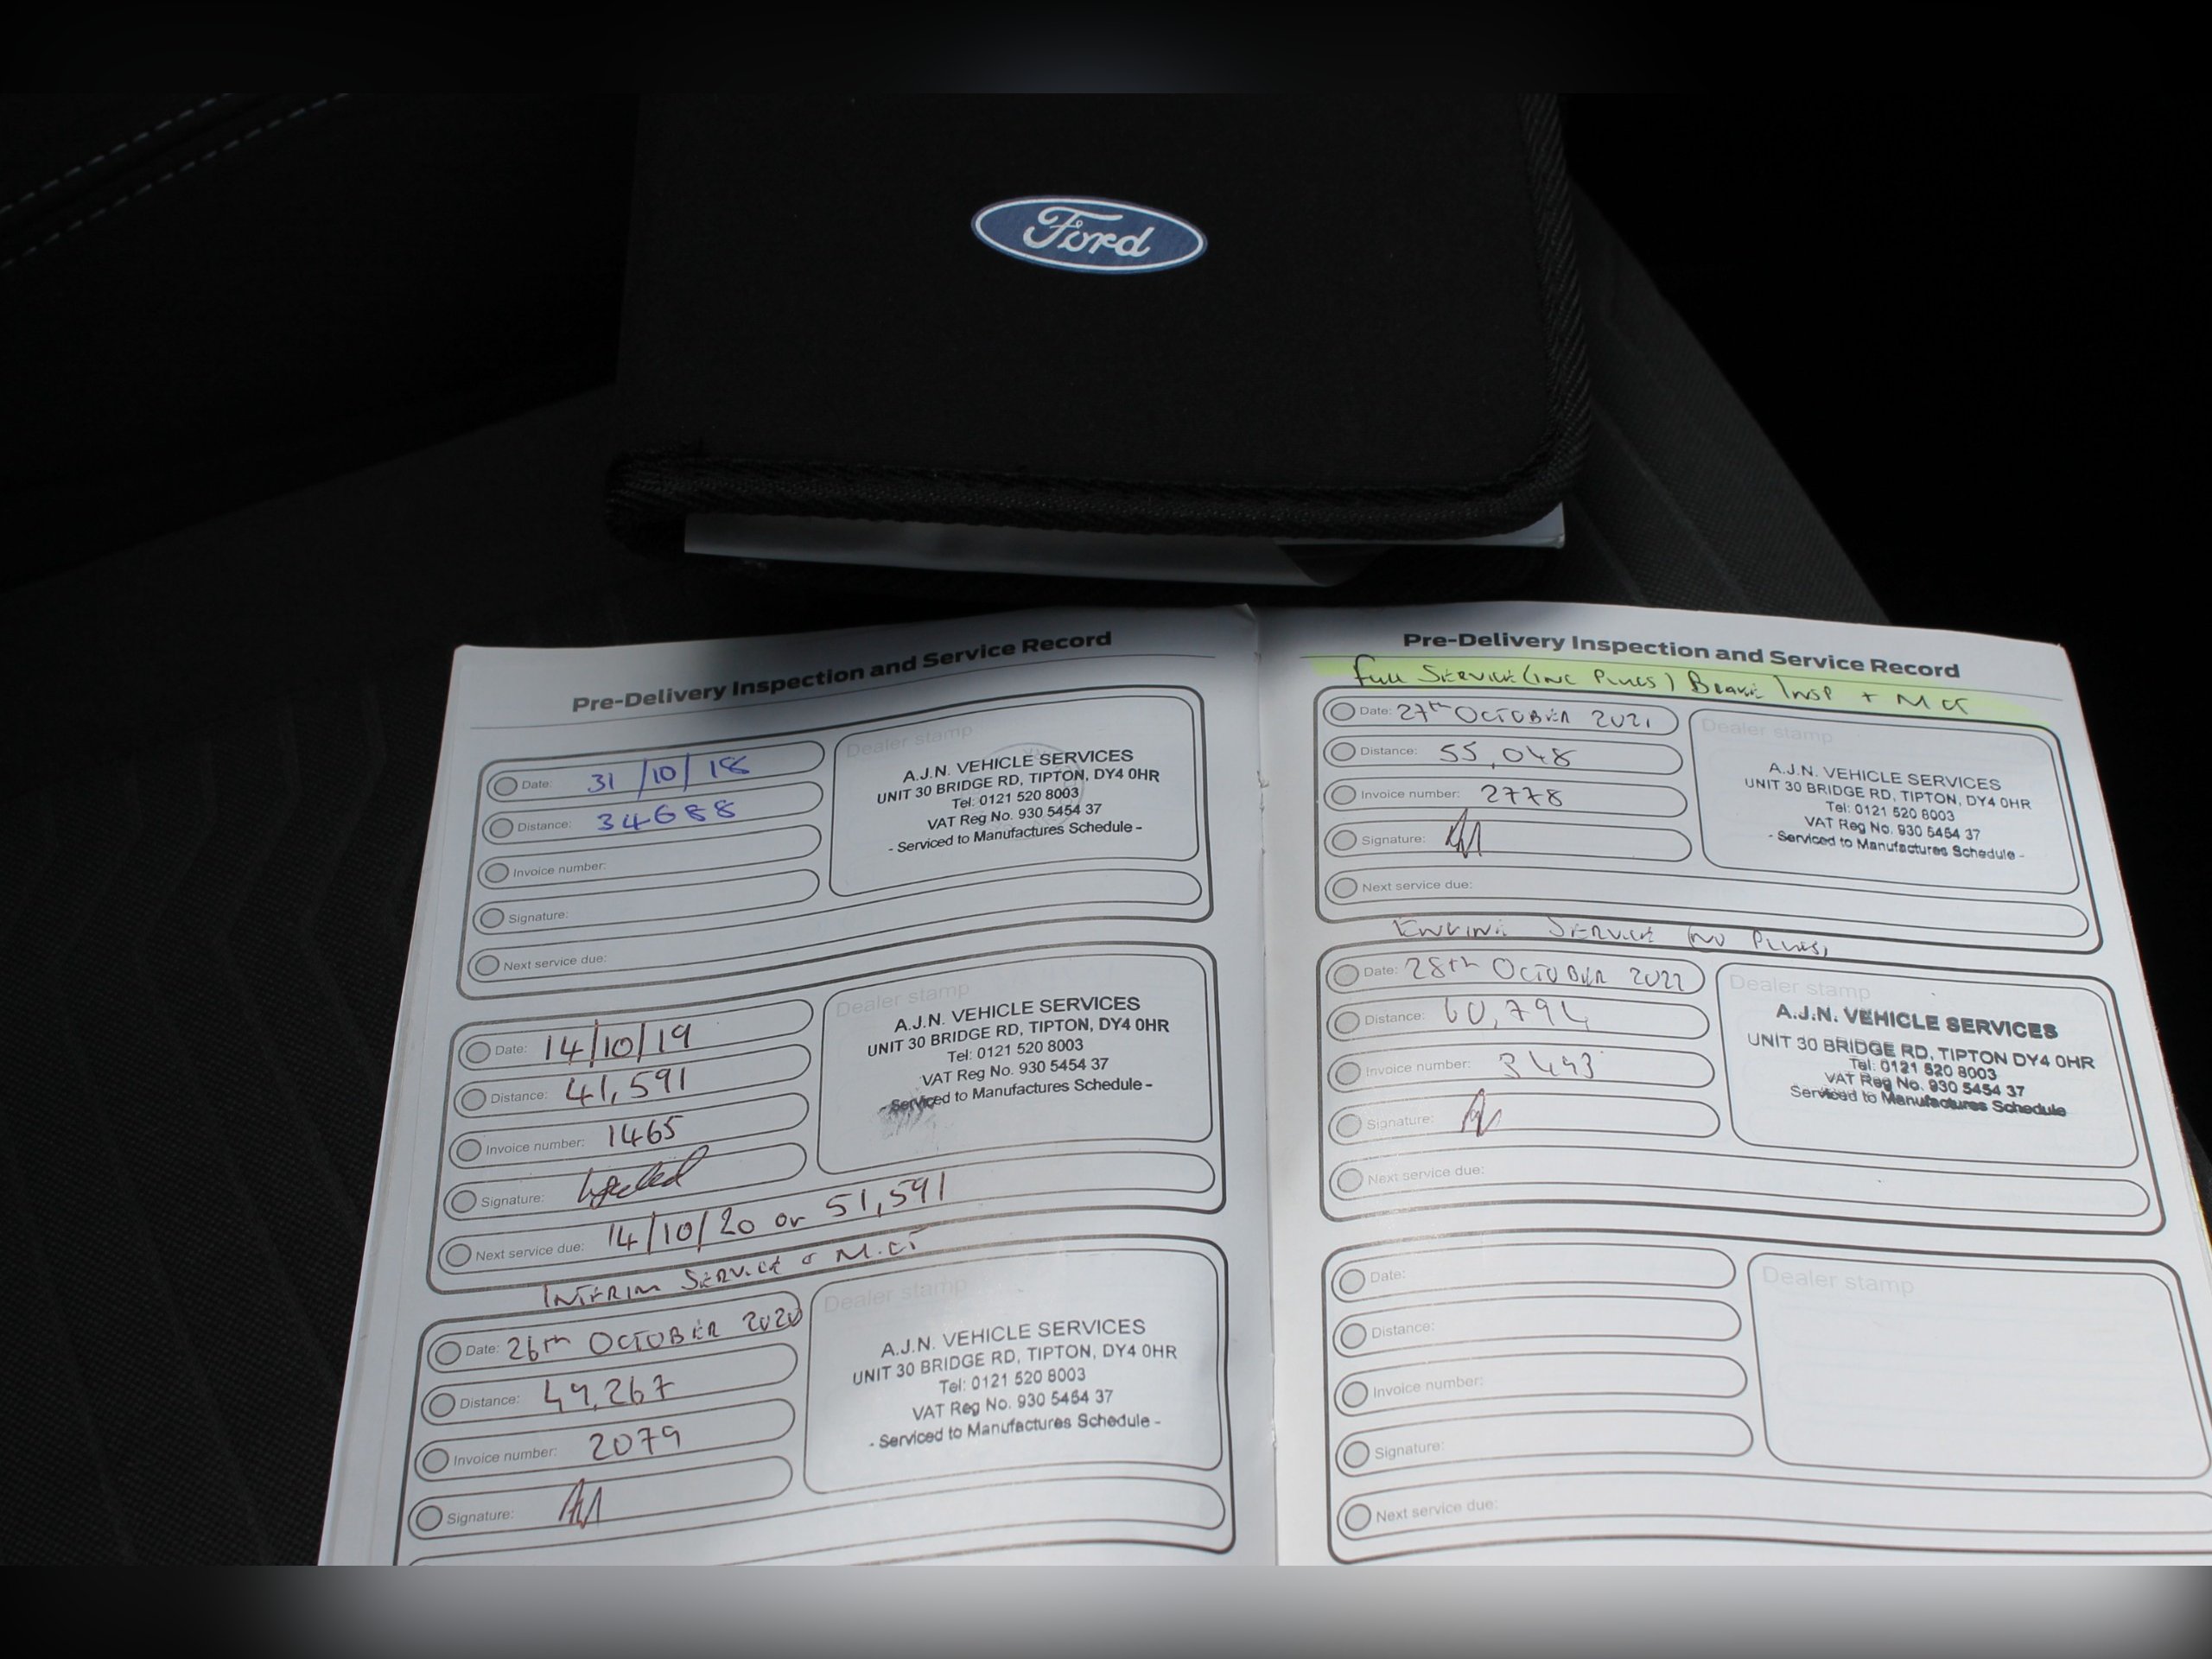 Ford
Pre-Delivery Inspection and Service Record
Date: 31/10/18
Distance: 34688
Invoice number:
Signature:
Next service due:
Dealer stamp
A.J.N. VEHICLE SERVICES
UNIT 30 BRIDGE RD, TIPTON, DY4 0HR
Tel: 0121 520 8003
VAT Reg No. 930 5454 37
- Serviced to Manufactures Schedule -
Date: 14/10/19
Distance: 41,591
Invoice number: 1465
Signature:
Next service due: 14/10/20 or 51,591
Dealer stamp
A.J.N. VEHICLE SERVICES
UNIT 30 BRIDGE RD, TIPTON, DY4 0HR
Tel: 0121 520 8003
VAT Reg No. 930 5454 37
- Serviced to Manufactures Schedule -
INTERIM SERVICE & M.OT
Date: 26th OCTOBER 2020
Distance: 49,267
Invoice number: 2079
Signature:
Dealer stamp
A.J.N. VEHICLE SERVICES
UNIT 30 BRIDGE RD, TIPTON, DY4 0HR
Tel: 0121 520 8003
VAT Reg No. 930 5454 37
- Serviced to Manufactures Schedule -
Pre-Delivery Inspection and Service Record
Full SERVICE (INC PLUGS) BRAKE INSP + M OT
Date: 27th OCTOBER 2021
Distance: 55,048
Invoice number: 2778
Signature:
Next service due:
Dealer stamp
A.J.N. VEHICLE SERVICES
UNIT 30 BRIDGE RD, TIPTON, DY4 0HR
Tel: 0121 520 8003
VAT Reg No. 930 5454 37
- Serviced to Manufactures Schedule -
ENGINE SERVICE (NO PLUGS)
Date: 28th OCTOBER 2022
Distance: 60,794
Invoice number: 3443
Signature:
Next service due:
Dealer stamp
A.J.N. VEHICLE SERVICES
UNIT 30 BRIDGE RD, TIPTON DY4 0HR
Tel: 0121 520 8003
VAT Reg No. 930 5454 37
Serviced to Manufactures Schedule
Date:
Distance:
Invoice number:
Signature:
Next service due:
Dealer stamp